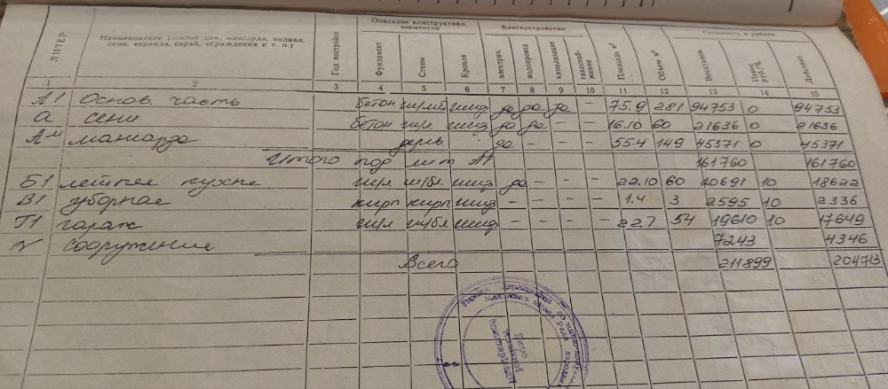 ЛИТЕР
Наименование (жилой дом, мансарда, подвал, сени, веранда, сарай, ограждения и т. п.)
Год постройки
Описание конструктивн. элементов
Фундамент
Стены
Кровля
Благоустройство
электрич.
водопровод
канализация
Площадь м²
Объем м³
Действит.
1 2 3 4 5 6 7 8 9 10 11 12 13 14 15
А1 Основ. часть бетон шид да да да – 75.9 281 94753 0 94753
а сени бетон шид да да – – 16.10 60 21636 0 21636
Ам мансарда да – – 55.4 149 45371 0 45371
Итого под лит А 161760 161760
Б1 летняя кухня шид да – – – 22.10 60 20691 10 18622
В1 уборная кирп кирп шид – – – – 1.4 3 2595 10 2336
Г1 гараж шид – – – – 22.7 54 19610 10 17649
сооружения 7243 4346
Всего 211899 204713